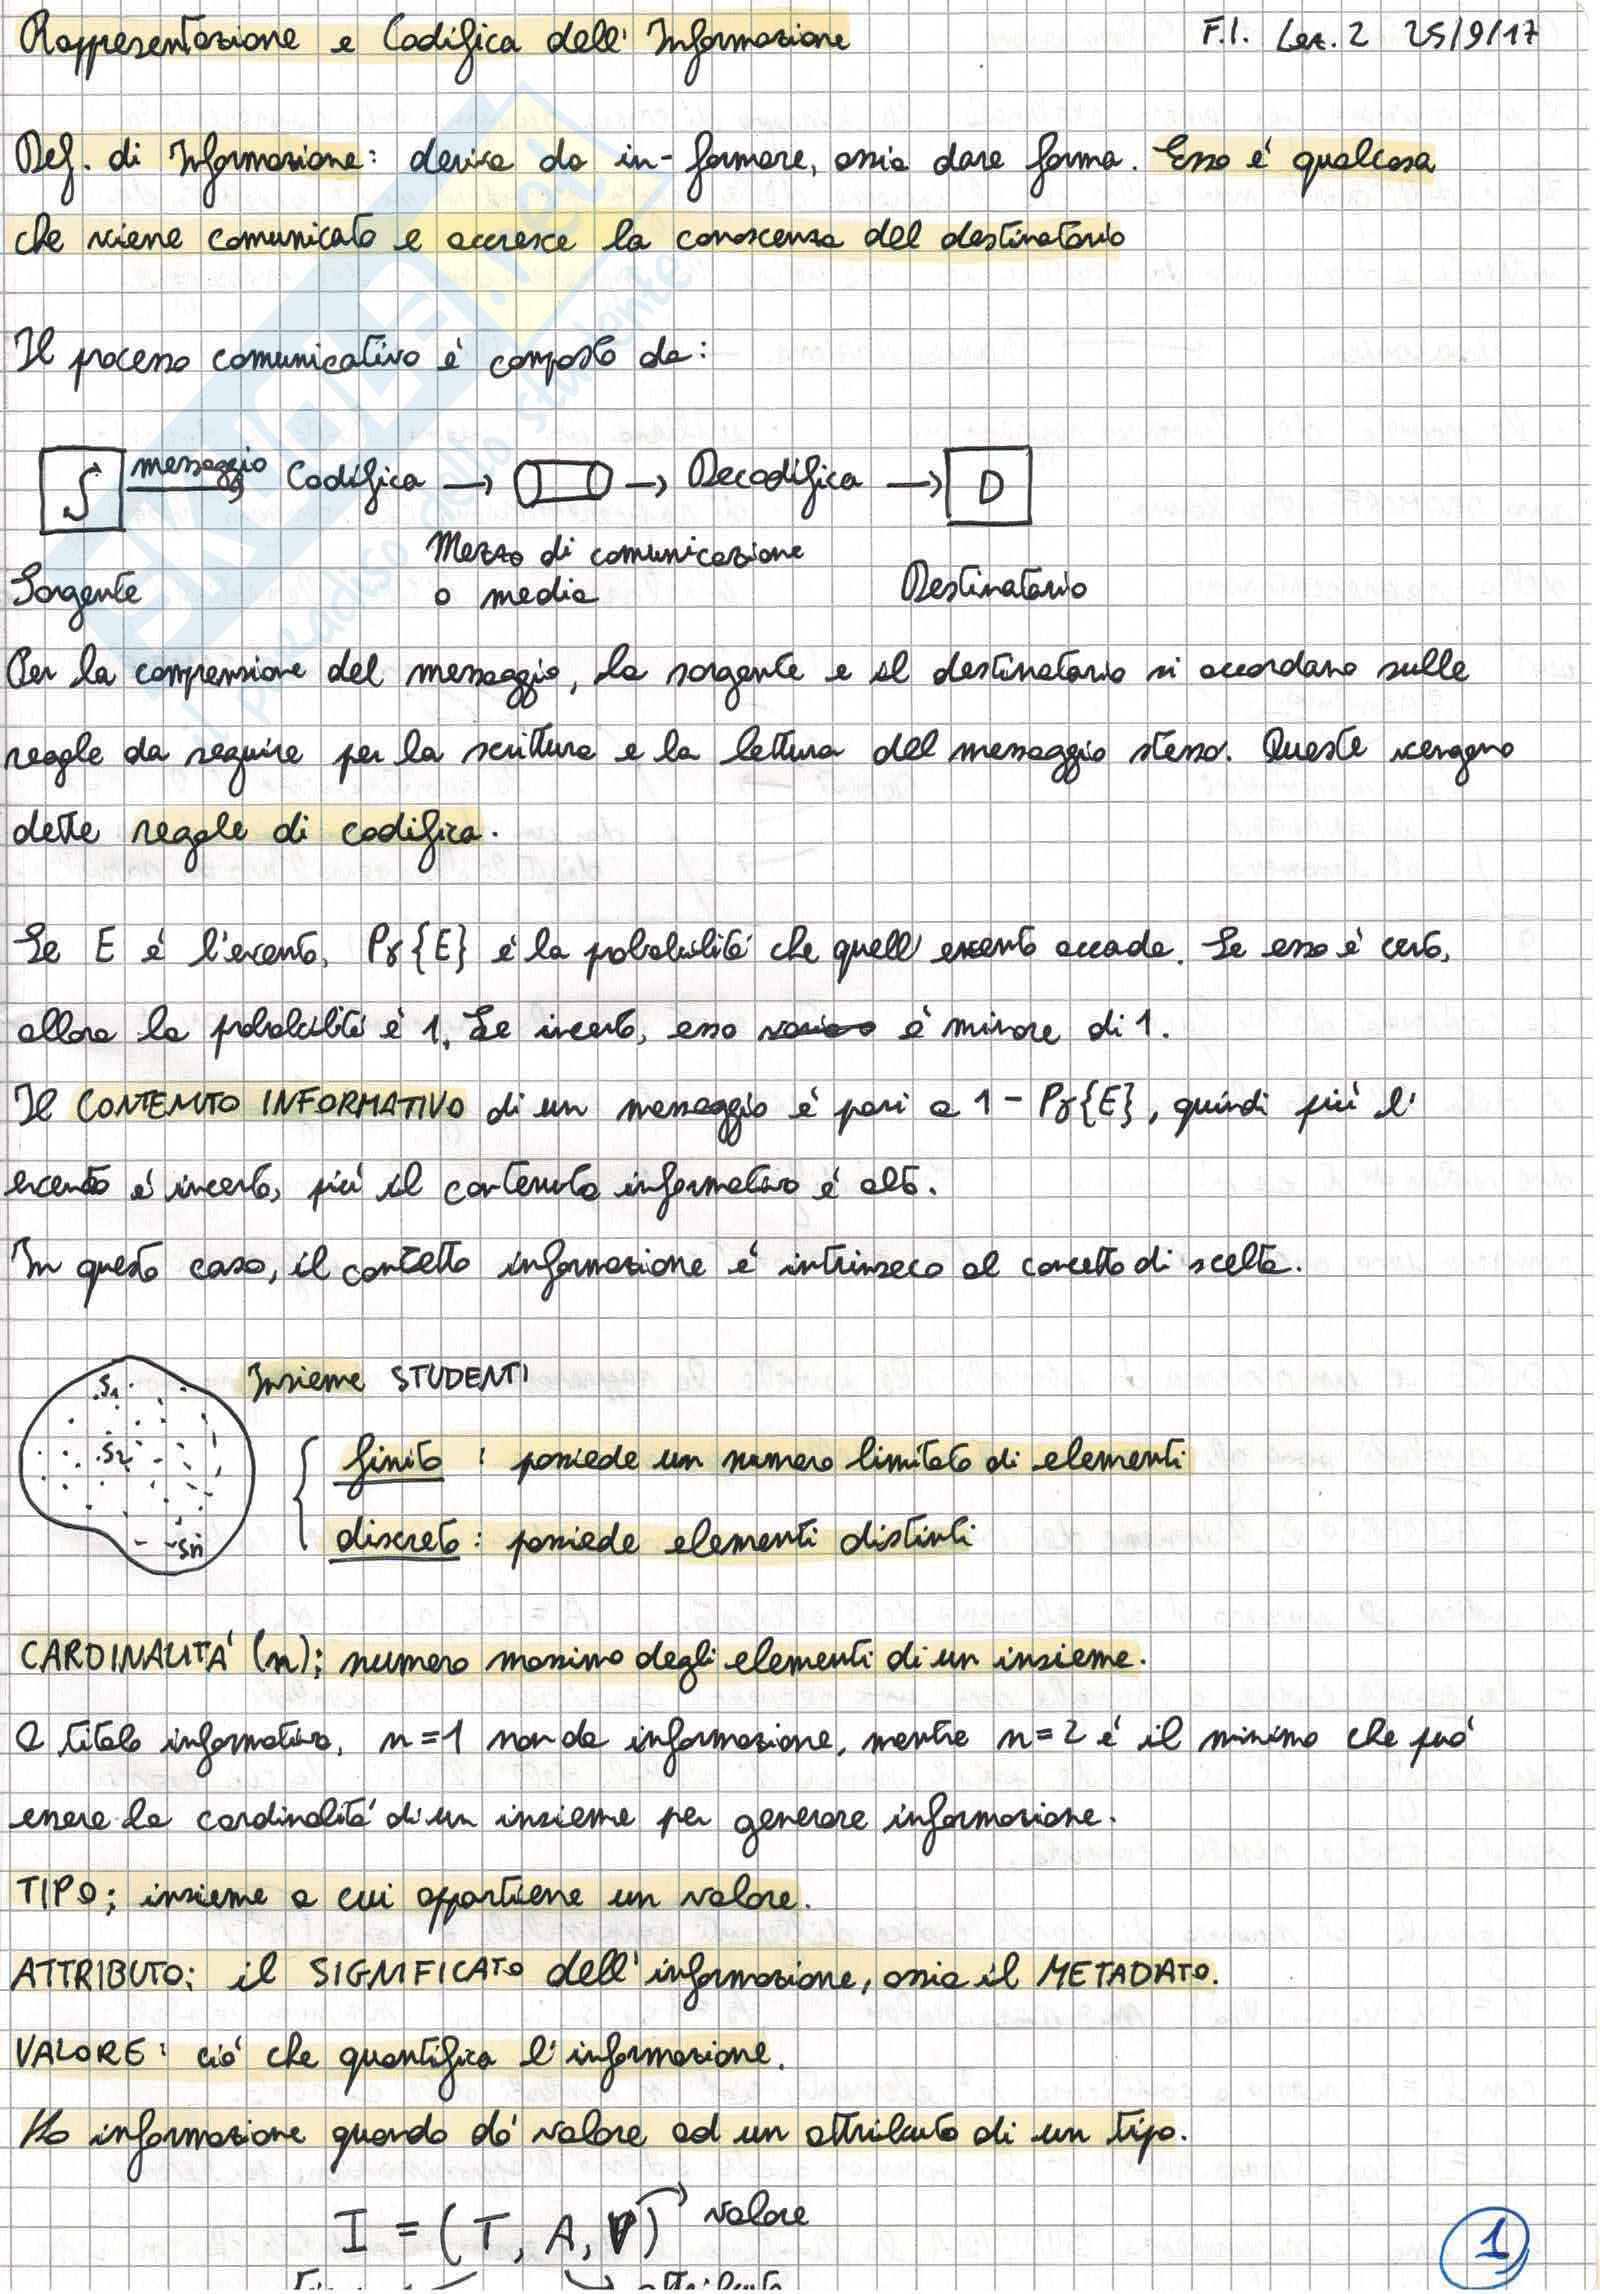 Rappresentazione e Codifica dell'Informazione F.I. Lez. 2 25/9/17
Def. di Informazione: deriva da in-formare, ossia dare forma. Essa è qualcosa
che viene comunicato e accresce la conoscenza del destinatario
Il processo comunicativo è composto da:
S messaggio Codifica → → Decodifica → D
Mezzo di comunicazione
Sorgente o media Destinatario
Per la comprensione del messaggio, la sorgente e il destinatario si accordano sulle
regole da seguire per la scrittura e la lettura del messaggio stesso. Queste vengono
dette regole di codifica.
Se E è l'evento, Pr{E} è la probabilità che quell'evento accada. Se esso è certo,
allora la probabilità è 1. Se incerto, essa è minore di 1.
Il CONTENUTO INFORMATIVO di un messaggio è pari a 1 - Pr{E}, quindi più l'
evento è incerto, più il contenuto informativo è alto.
In questo caso, il concetto informazione è intrinseco al concetto di scelta.
S1 Insieme STUDENTI
S2 finito : possiede un numero limitato di elementi
Sn discreto : possiede elementi distinti
CARDINALITA' (n): numero massimo degli elementi di un insieme.
A titolo informativo, n=1 non da informazione, mentre n=2 è il minimo che può
essere la cardinalità di un insieme per generare informazione.
TIPO: insieme a cui appartiene un valore.
ATTRIBUTO: il SIGNIFICATO dell'informazione, ossia il METADATO.
VALORE: ciò che quantifica l'informazione.
Ho informazione quando dò valore ad un attributo di un tipo.
I = (T, A, V) valore
attributo
1
SKUOLA.net
il paradiso dello studente